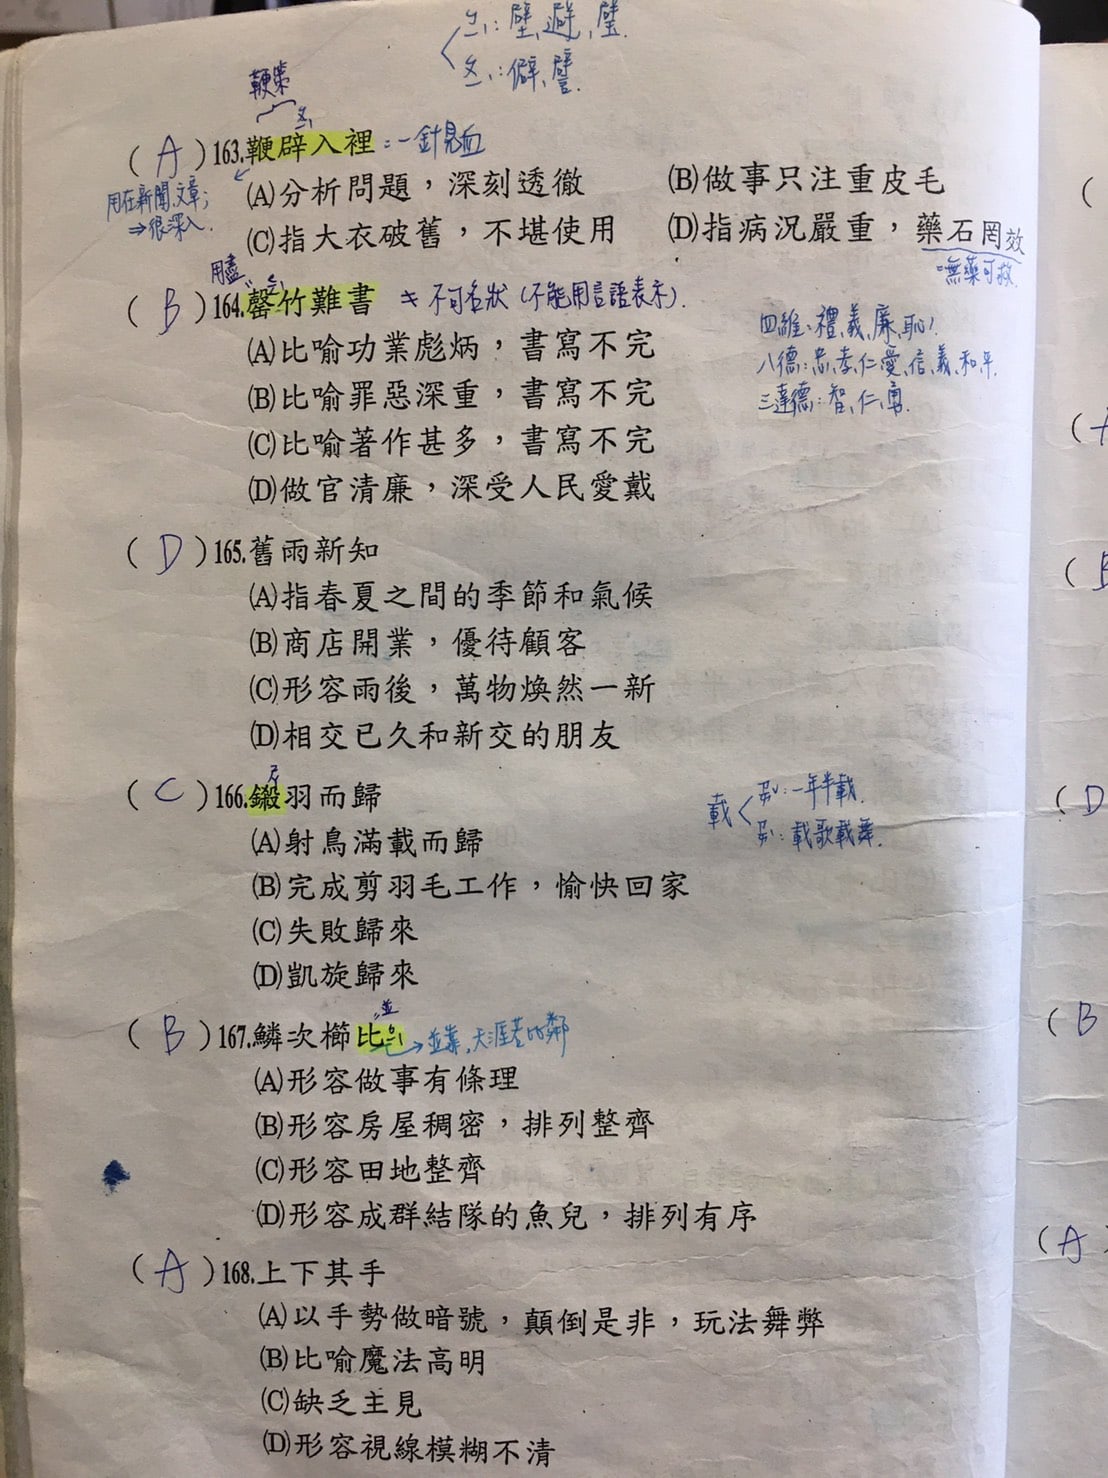 ㄅㄧˋ：壁、避、璧.
ㄆㄧˋ：僻、譬.
鞭策
ㄆㄧˋ
(A)163.鞭辟入裡=一針見血
用在新聞、文章；
⇒很深入.
(A)分析問題，深刻透徹 (B)做事只注重皮毛
(C)指大衣破舊，不堪使用 (D)指病況嚴重，藥石罔效
=無藥可救
用盡
(B)164.罄竹難書 不可名狀(不能用言語表示).
四維：禮、義、廉、恥！
八德：忠、孝、仁、愛、信、義、和、平.
三達德：智、仁、勇.
(A)比喻功業彪炳，書寫不完
(B)比喻罪惡深重，書寫不完
(C)比喻著作甚多，書寫不完
(D)做官清廉，深受人民愛戴
(D)165.舊雨新知
(A)指春夏之間的季節和氣候
(B)商店開業，優待顧客
(C)形容雨後，萬物煥然一新
(D)相交已久和新交的朋友
(C)166.鎩羽而歸
載 ㄗㄞˇ：一年半載.
ㄗㄞˋ：載歌載舞.
(A)射鳥滿載而歸
(B)完成剪羽毛工作，愉快回家
(C)失敗歸來
(D)凱旋歸來
並
(B)167.鱗次櫛比 ㄅㄧˋ →並靠，天涯若比鄰
(A)形容做事有條理
(B)形容房屋稠密，排列整齊
(C)形容田地整齊
(D)形容成群結隊的魚兒，排列有序
(A)168.上下其手
(A)以手勢做暗號，顛倒是非，玩法舞弊
(B)比喻魔法高明
(C)缺乏主見
(D)形容視線模糊不清